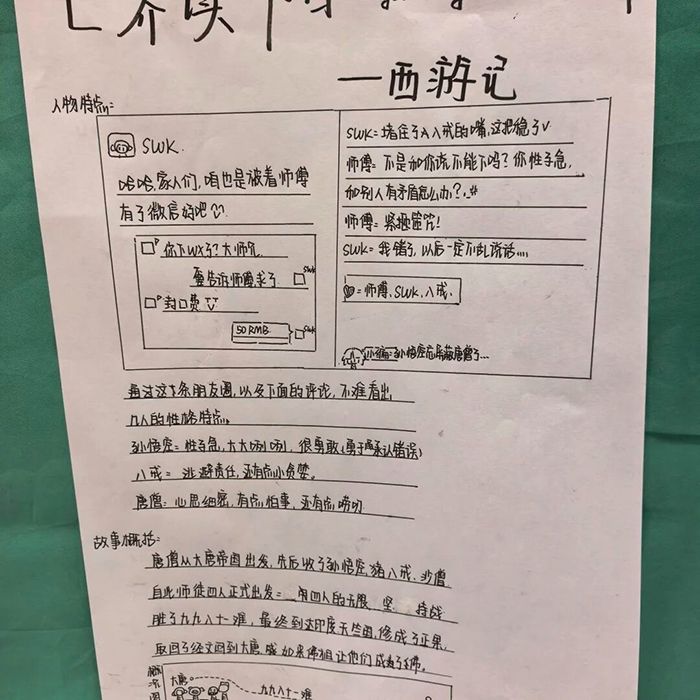 —西游记
人物特点:
SWK.
哈哈,家人们,咱也是被着师傅
有了微信好吧
你下WX了?大师兄.
要告诉师傅求了
SWK
封口费
50 RMB
SWK
SWK=堵住了八戒的嘴,这把稳了V
师傅=不是加你谎不能下吗?你性子急,
加别人有矛盾怎么办?
师傅=紧箍箍咒!
SWK=我错了,以后一定不乱说话....
=师傅、SWK、八戒.
小编:孙悟空忘屏蔽唐僧了...
通过这条朋友圈,以及下面的评论,不难看出
几人的性格特点.
孙悟空=性子急,大大咧咧,很勇敢(勇于承认错误)
八戒=逃避责任,还有点小贪婪.
唐僧:心思细密,有点怕事,还有点唠叨
故事概括:
唐僧从大唐帝国出发,先后收了孙悟空、猪八戒、沙僧
自此师徒四人正式出发=用四人的 坚 持战
胜了九九八十一难,最终到达印度天竺国,修成了正果,
取回了经文回到大唐,感如来佛祖让他们成为了佛.
大唐
九九八十一难